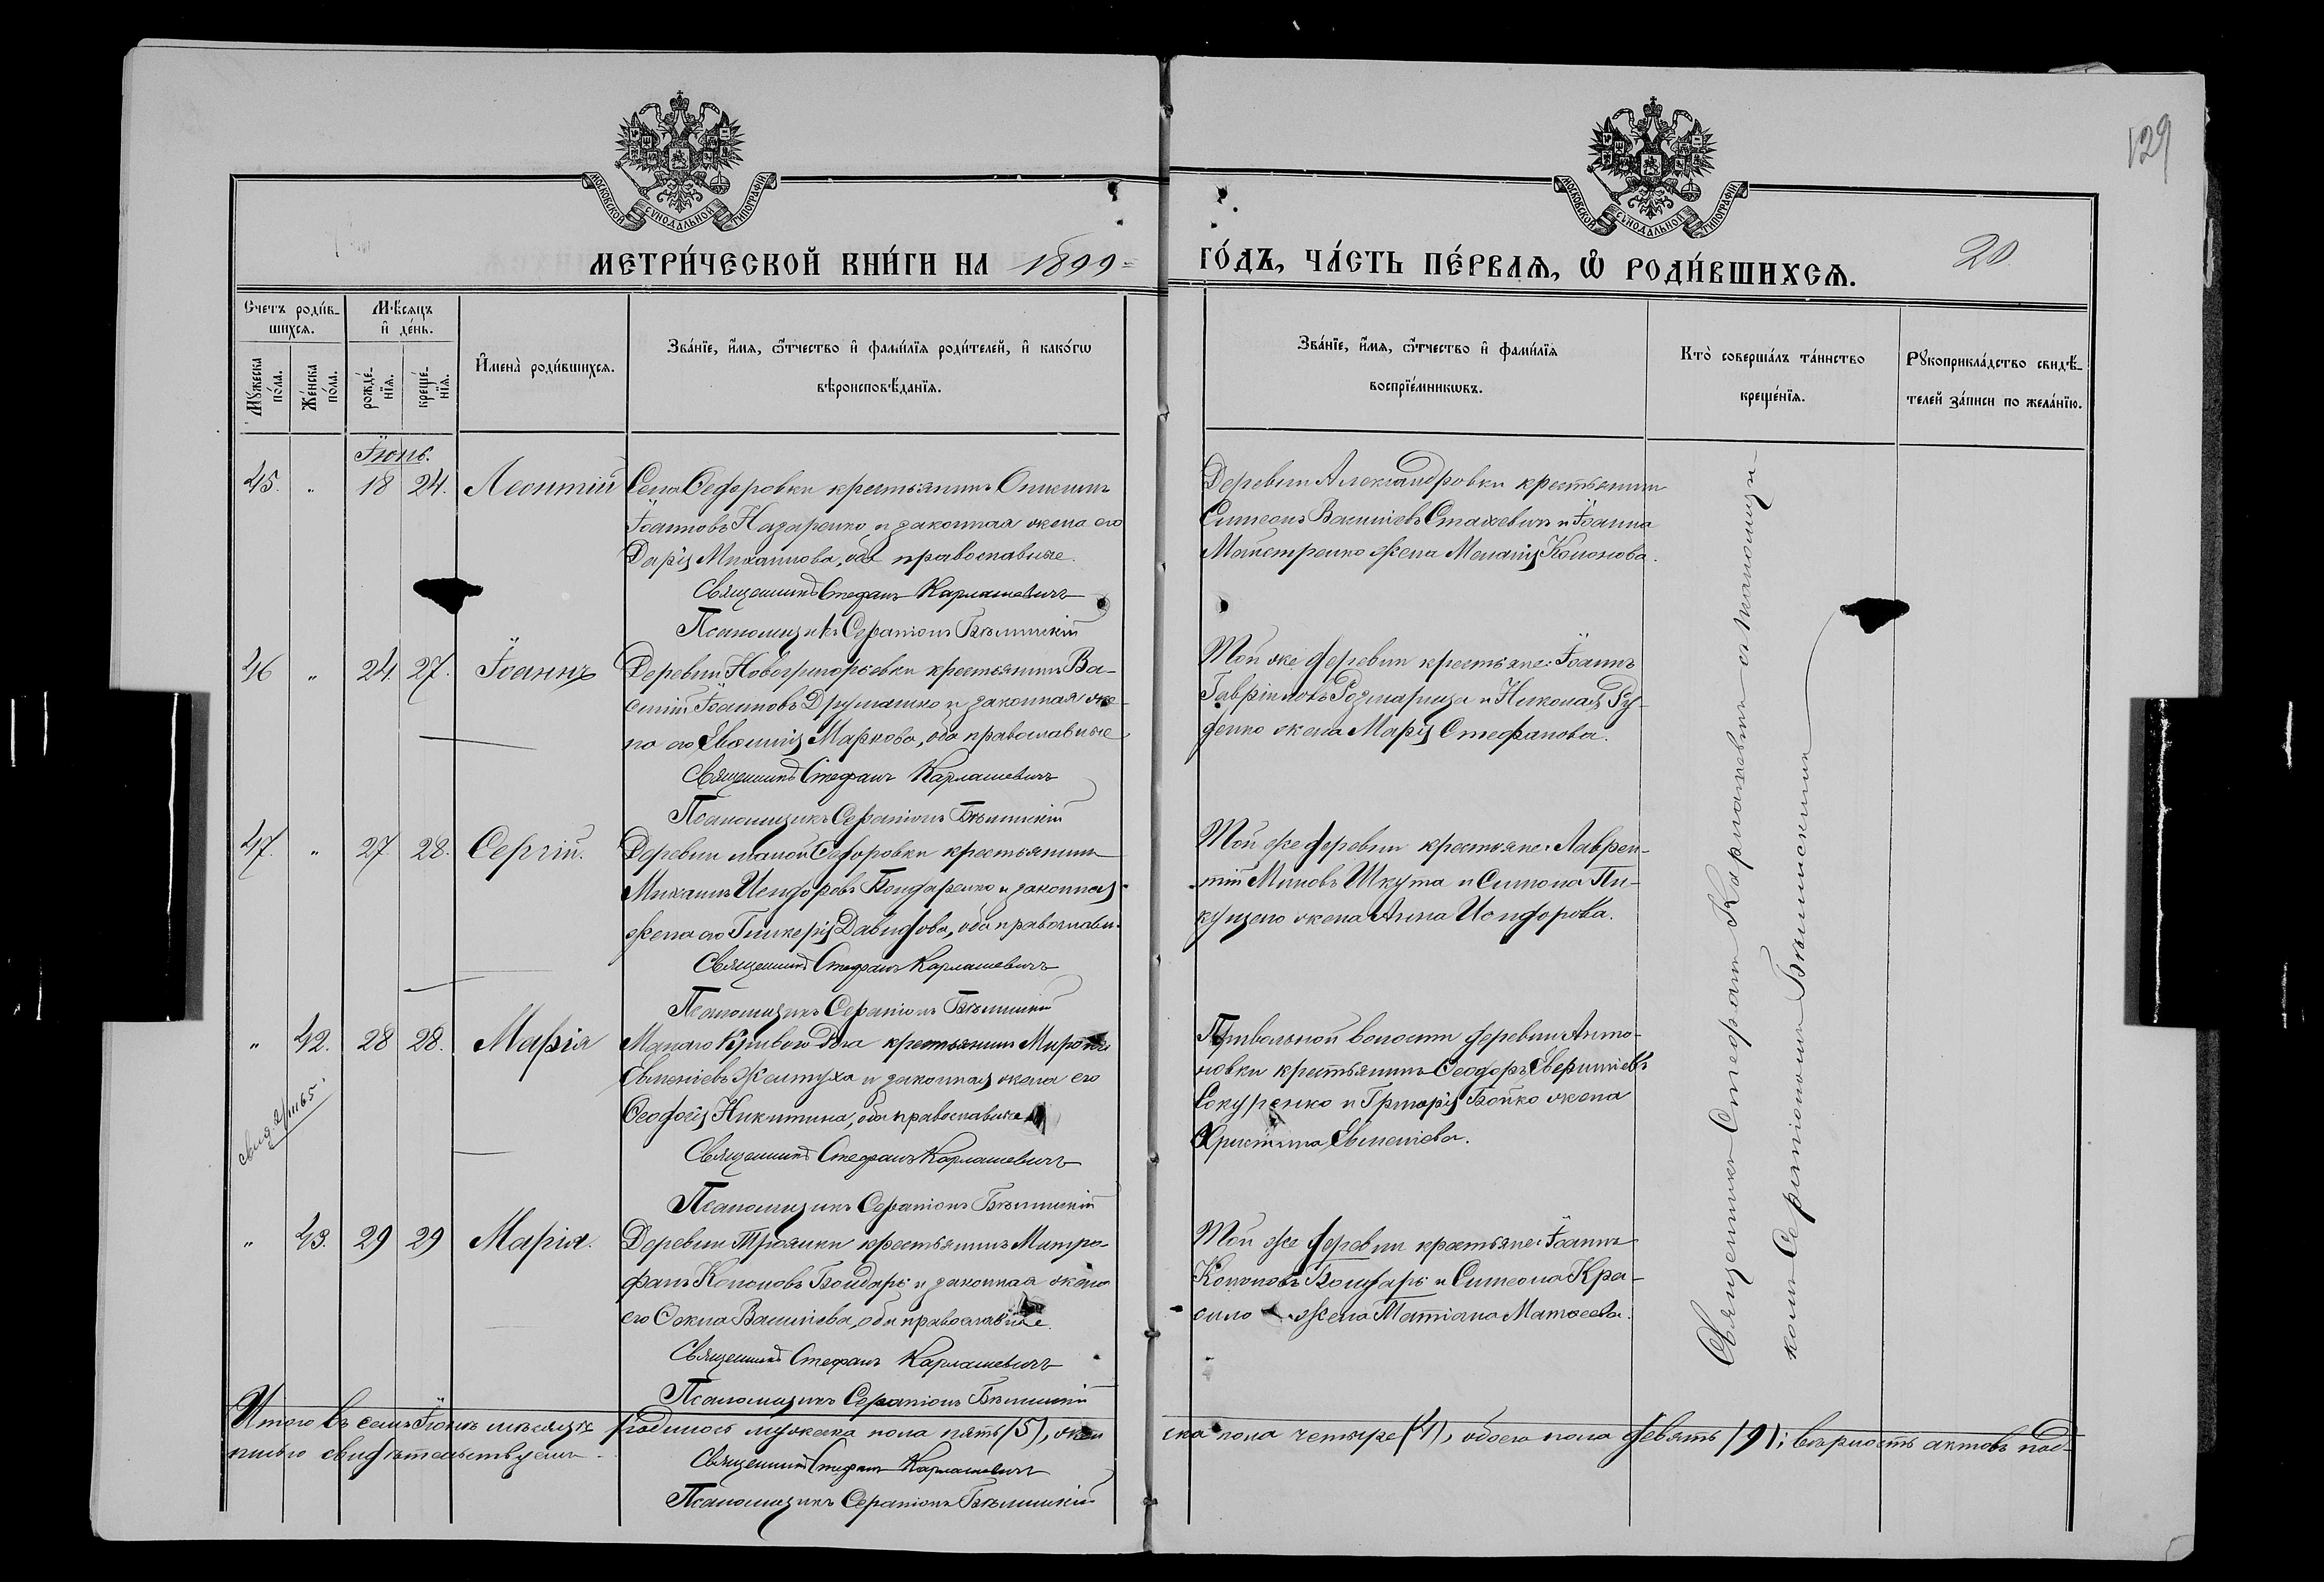 129
МОСКОВСКОЙ СУНОДАЛЬНОЙ ТИПОГРАФІИ
МОСКОВСКОЙ СУНОДАЛЬНОЙ ТИПОГРАФІИ
МЕТРИ́ЧЕСКОЙ КНИ́ГИ НА 1899
ГО́ДЪ, ЧА́СТЬ ПЕ́РВАѦ, Ѡ҆ РОДИ́ВШИХСѦ. 20
Счетъ роди́в-
шихсѧ.
Мѣсѧцъ
и҆ де́нь.
Мꙋжеска
по́ла.
Же́нска
по́ла.
рожде́-
нїѧ.
креще́-
нїѧ.
И҆мена̀ роди́вшихсѧ.
Зва́нїе, и҆́мѧ, ѻ҆́тчество и҆ фами́лїѧ роди́телей, и҆ како́гѡ
вѣроисповѣ́данїѧ.
Зва́нїе, и҆́мѧ, ѻ҆́тчество и҆ фами́лїѧ
воспрїе́мникѡвъ.
Кто̀ соверша́лъ та́инство
креще́нїѧ.
Рꙋкоприкла́дство свидѣ́-
телей за́писи по жела́нїю.
Іюнь.
45. " 18 24. Леонтій
Села Ѳедоровки крестьянинъ
Іоанновъ Назаренко и законная жена его
Дарія Михаилова, оба православные.
Священникъ Стефанъ Карлашевичъ
Псаломщикъ Серапіонъ Бѣлинскій
Деревни Александровки крестьянинъ
Симеонъ Василіевъ Стахевичъ и Іоанна
Майстренко жена Меланія Кононова.
46 " 24. 27. Іоаннъ
Деревни Новогригорьевки крестьянинъ Ва-
силій Іоанновъ и законная же-
на его Евфимія Маркова, оба православные
Священникъ Стефанъ Карлашевичъ
Псаломщикъ Серапіонъ Бѣлинскій
Той же деревни крестьяне: Іоаннъ
Гавріиловъ Розмарица и Николая Ру-
денко жена Марія Стефанова.
47. " 27. 28. Сергій.
Деревни малой Ѳедоровки крестьянинъ
Михаилъ Исидоровъ Бондаренко и законная
жена его Гликерія Давидова, оба православн.
Священникъ Стефанъ Карлашевичъ
Псаломщикъ Серапіонъ Бѣлинскій
Той же деревни крестьяне: Лаврен-
тій Миновъ Шкута и Симона Пи-
жена Анна Исидорова.
" 42. 28 28. Марія
Малаго Кривого Рога крестьянинъ Миронъ
Евменіевъ Желтуха и законная жена его
Ѳеодосія Никитина, оба православные
Священникъ Стефанъ Карлашевичъ
Псаломщикъ Серапіонъ Бѣлинскій
Привольной волости деревни Анто-
новки крестьянинъ Ѳеодоръ
Сокуренко и Григорія Бойко жена
Христина Евменіева.
" 43. 29 29 Марія.
Деревни Трояинки крестьянинъ Митро-
фанъ Кононовъ Бондарь и законная жена
его Ѳекла Василіева, оба православные.
Священникъ Стефанъ Карлашевичъ
Псаломщикъ Серапіонъ Бѣлинскій
Той же деревни крестьяне: Іоаннъ
Кононовъ Бондарь и Симеона Кра-
сило жена Татіана Матѳеева.
Священникъ Стефанъ Карлашевичъ съ псаломщи-
комъ Серапіономъ Бѣлинскимъ
Итого въ семъ Іюнѣ мѣсяцѣ родилось мужеска пола пять (5), жен
ска пола четыре (4), обоего пола девять (9); вѣрность актовъ под-
писью свидѣтельствуемъ.
Священникъ Стефанъ Карлашевичъ
Псаломщикъ Серапіонъ Бѣлинскій